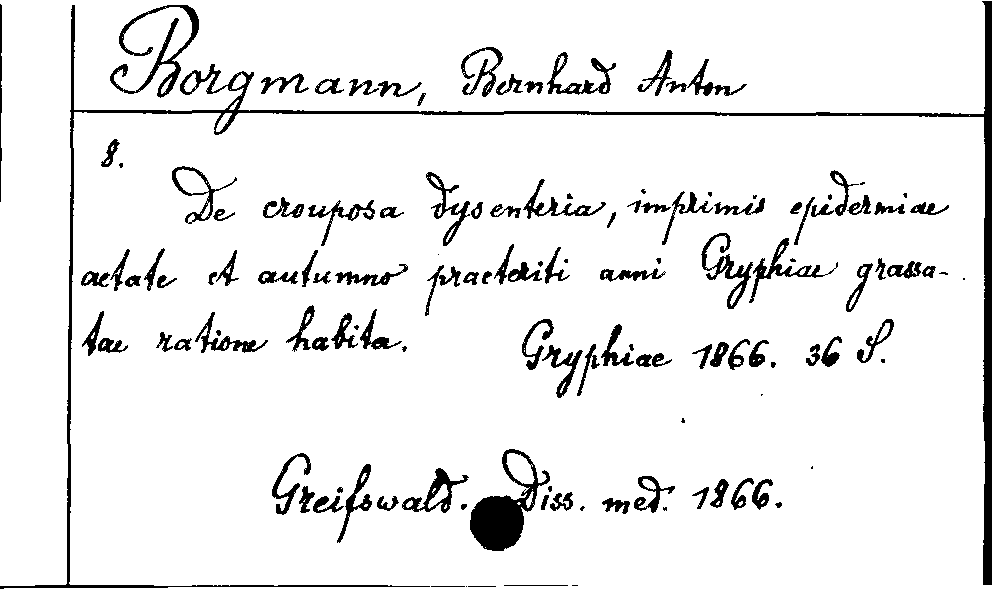 Borgmann, Bernhard Anton
8.
De crouposa dysenteria, imprimis epidermiae
aetate et autumno praeteriti anni Gryphiae grassa-
tae ratione habita. Gryphiae 1866. 36 S.
Greifswald. Diss. med. 1866.